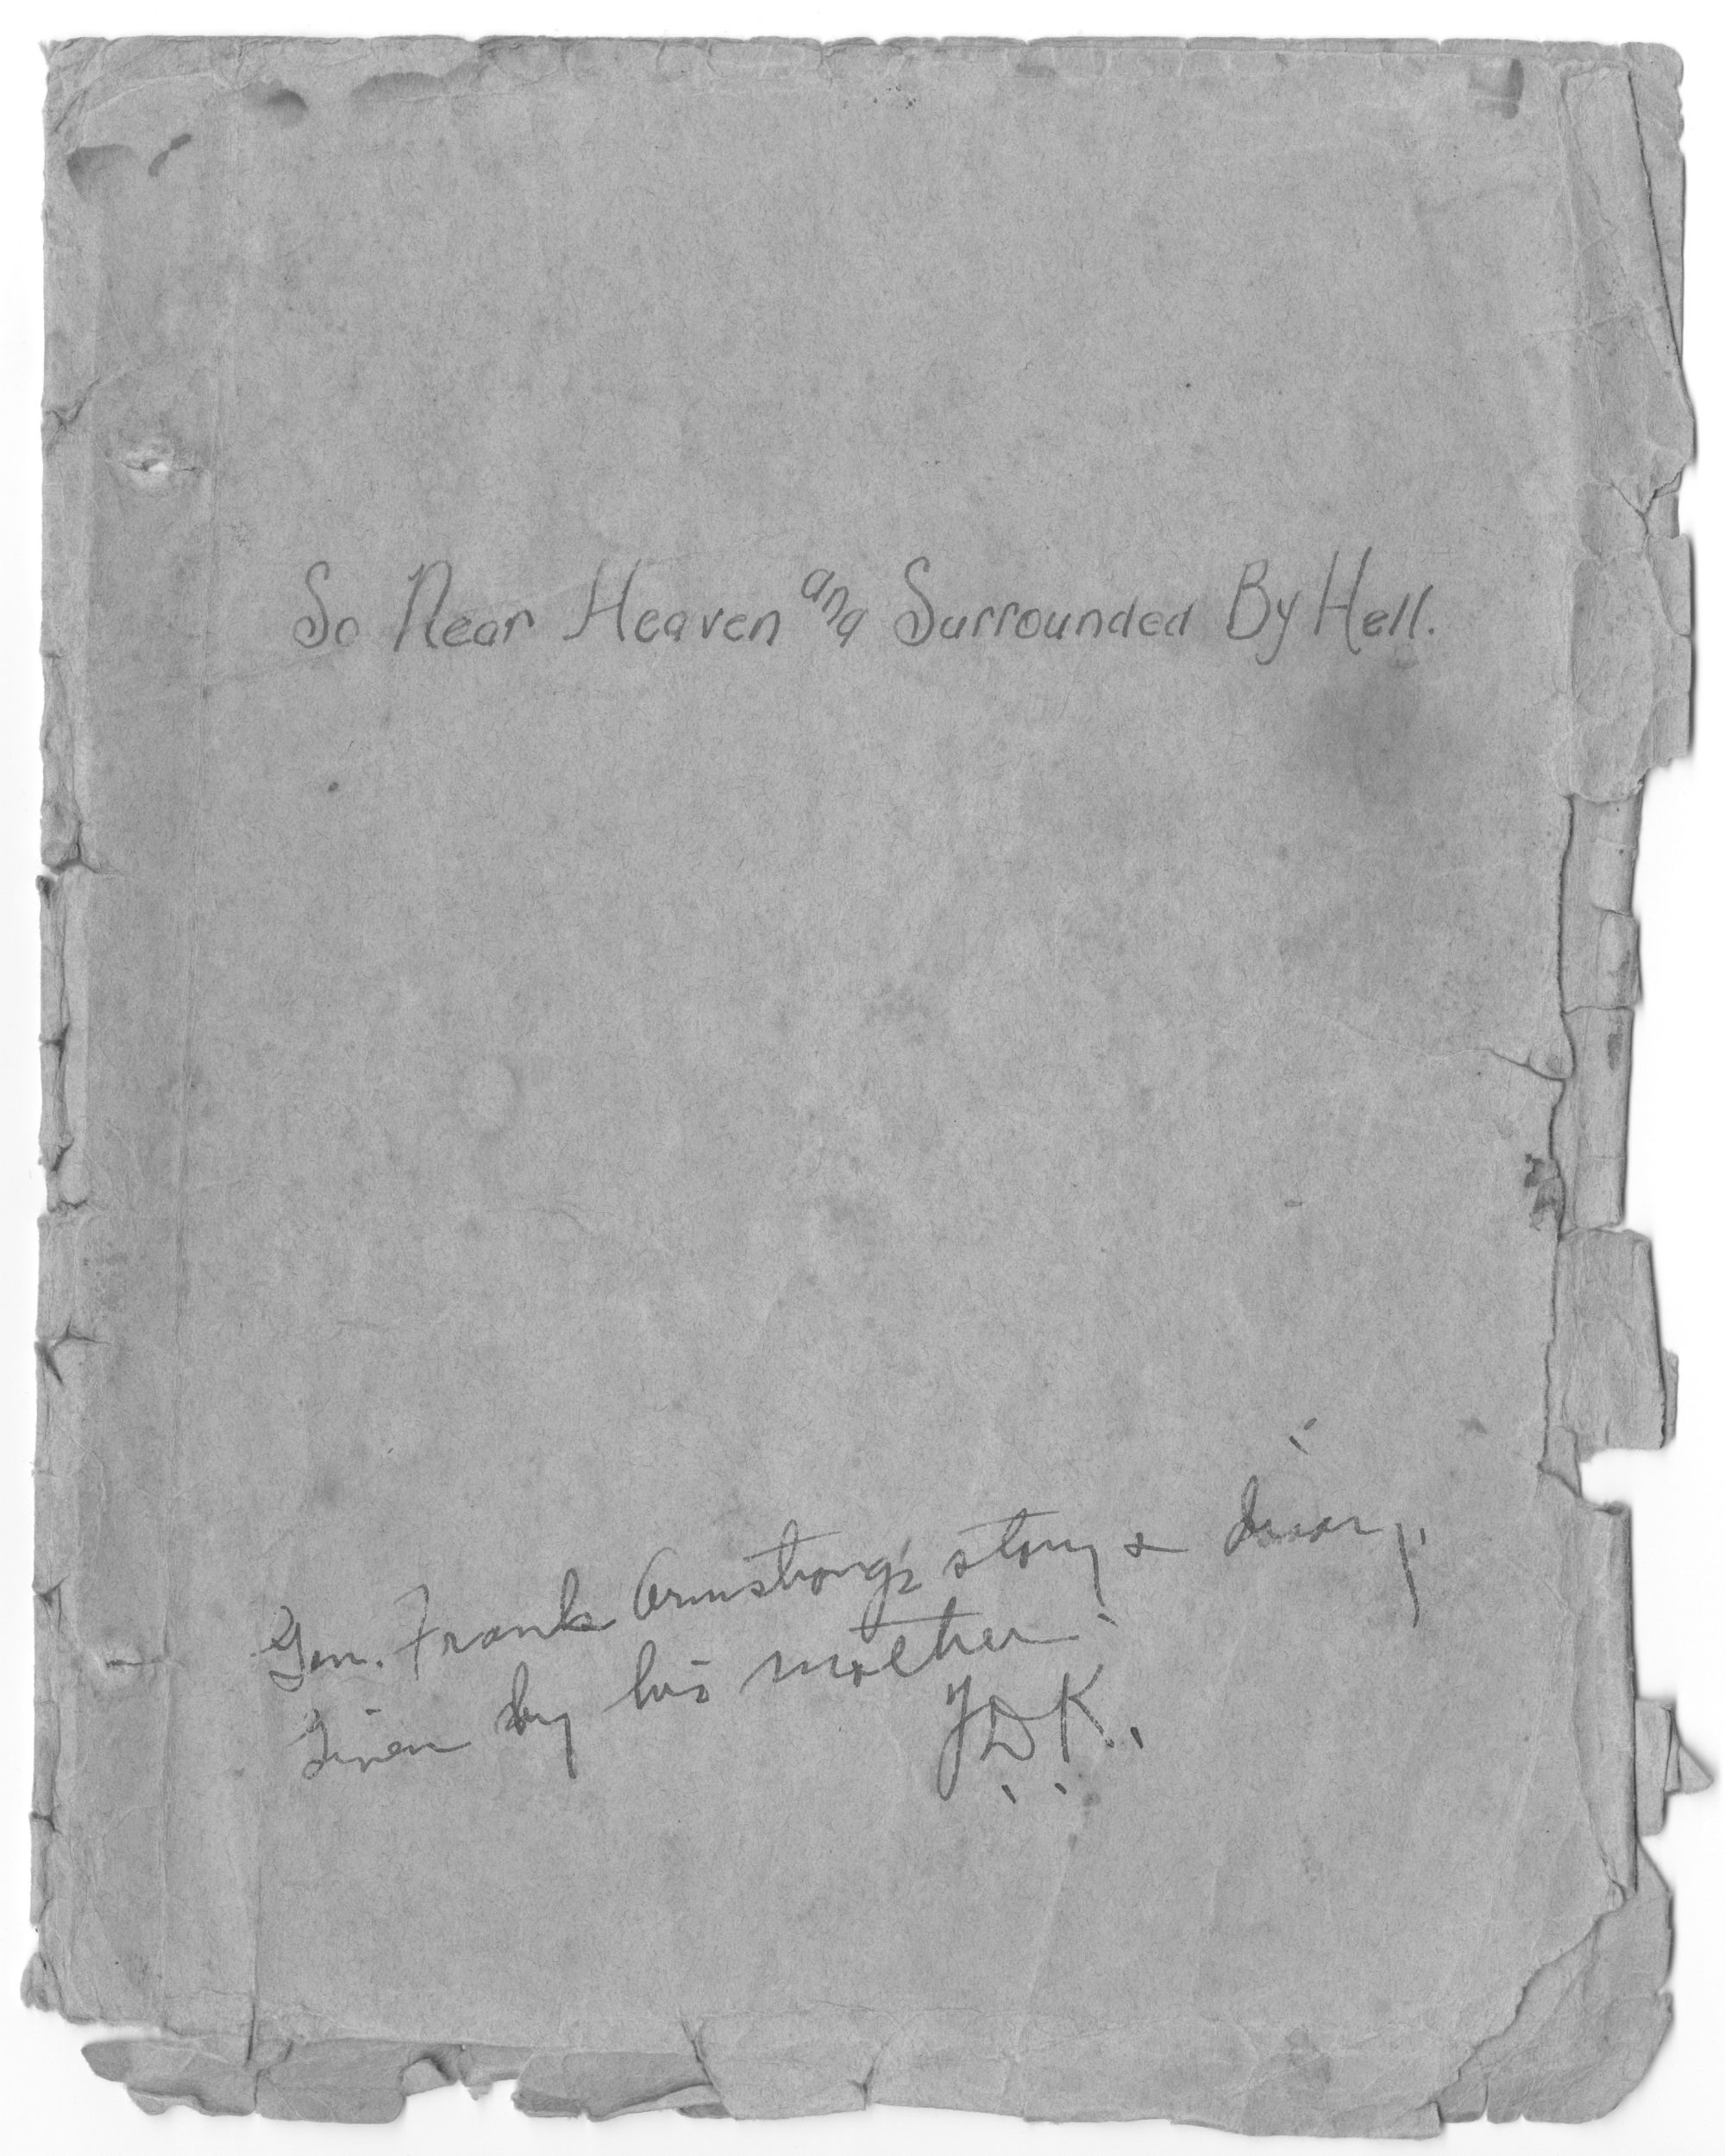 So Near Heaven and Surrounded By Hell.
Gen. Frank Armstrong's story & diary.
Given by his mother
JDK.